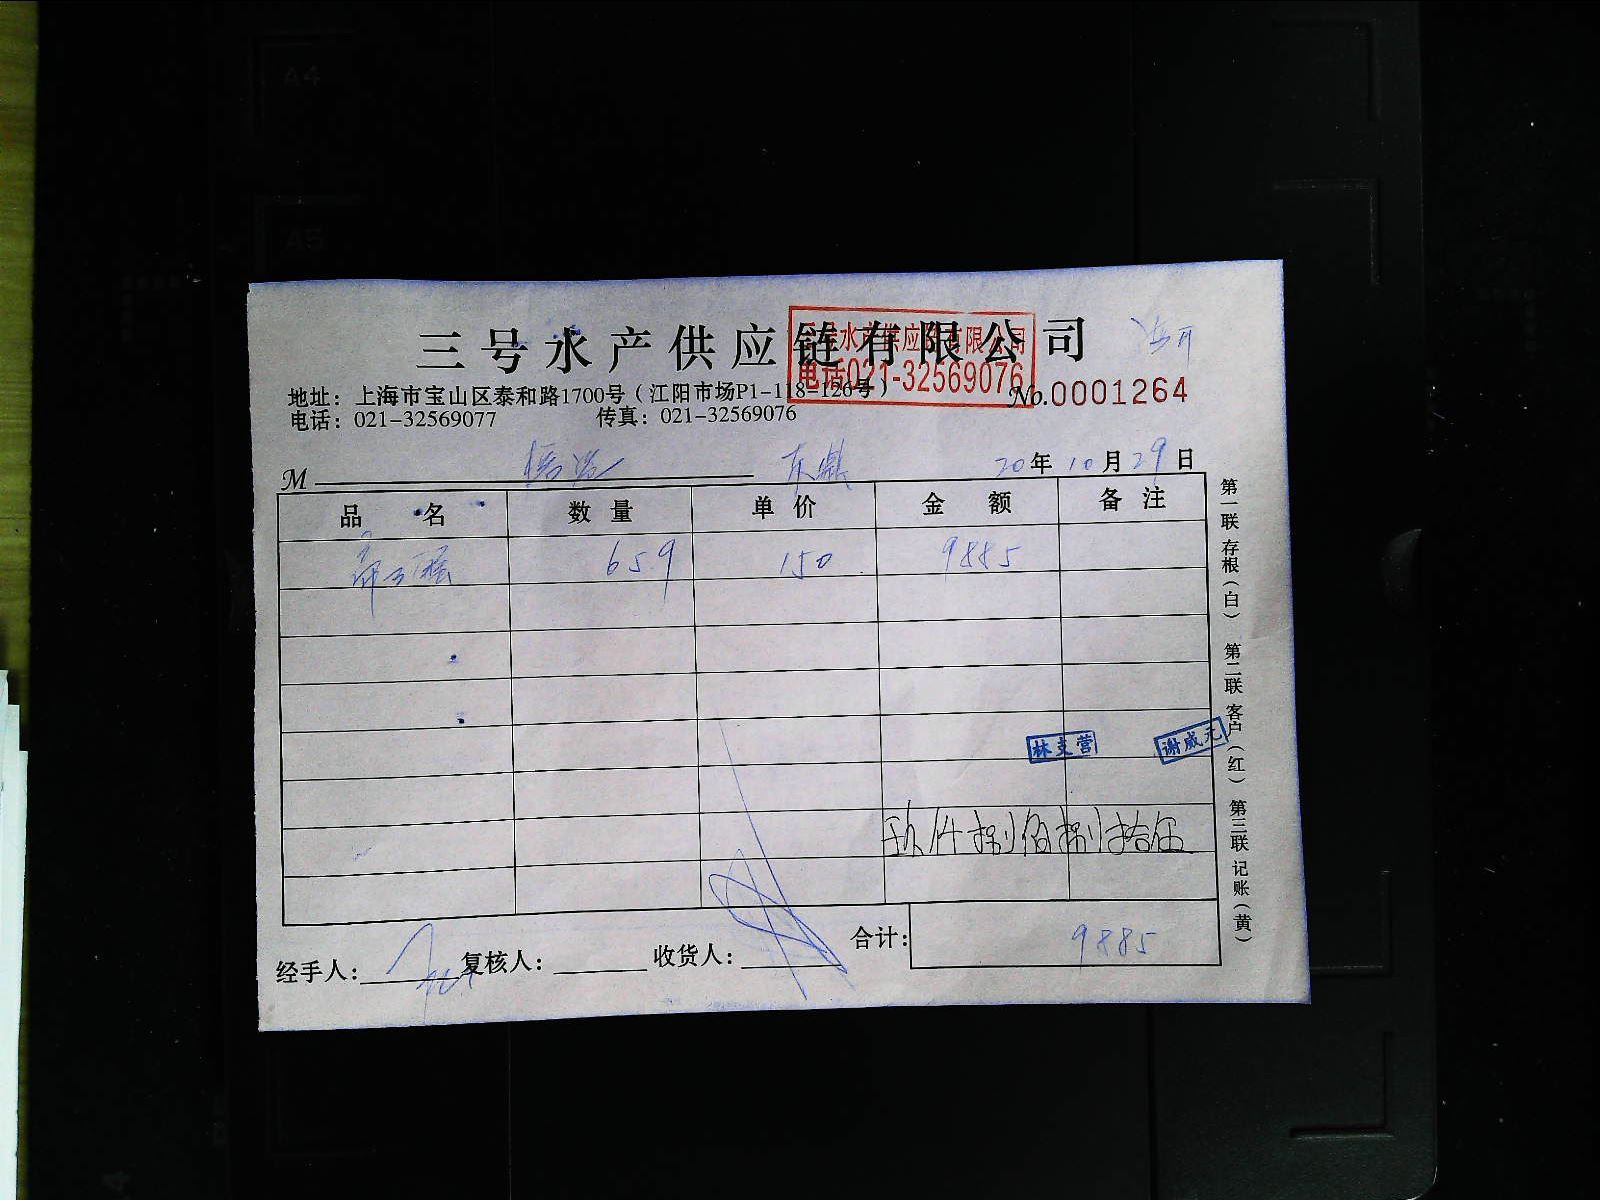 A4
A5
三号水产供应链有限公司
三号水产供应链有限公司
电话021-32569076
地址：上海市宝山区泰和路1700号（江阳市场P1-118-126号）
No.0001264
电话：021-32569077 传真：021-32569076
M 东鼎 20年10月29日
品名 数量 单价 金额 备注
65.9 150 9885
林支营 谢威元
玖仟捌佰捌拾伍
经手人： 复核人： 收货人： 合计： 9885
第一联存根（白） 第二联客户（红） 第三联记账（黄）